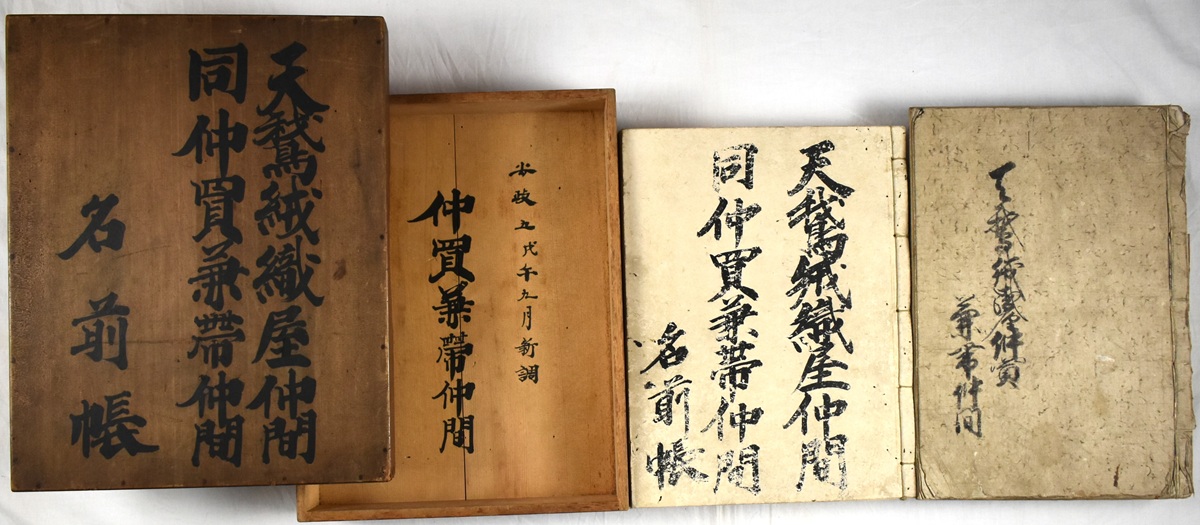 天鵞絨織屋仲間
同仲買兼帯仲間
名前帳
安政五戊午九月新調
仲買兼帯仲間
天鵞絨織屋仲間
同仲買兼帯仲間
名前帳
天鵞絨織屋仲買
兼帯仲間